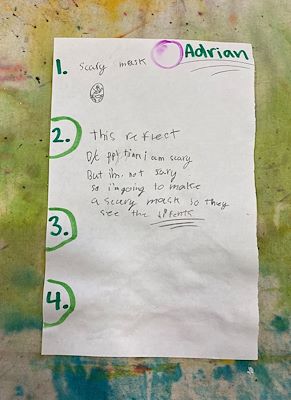 Adrian
1. scary mask
2. this reflect
D/c ppl tian i am scary
But i'm not scary
so i'm going to make
a scary mask so they
see the
3.
4.